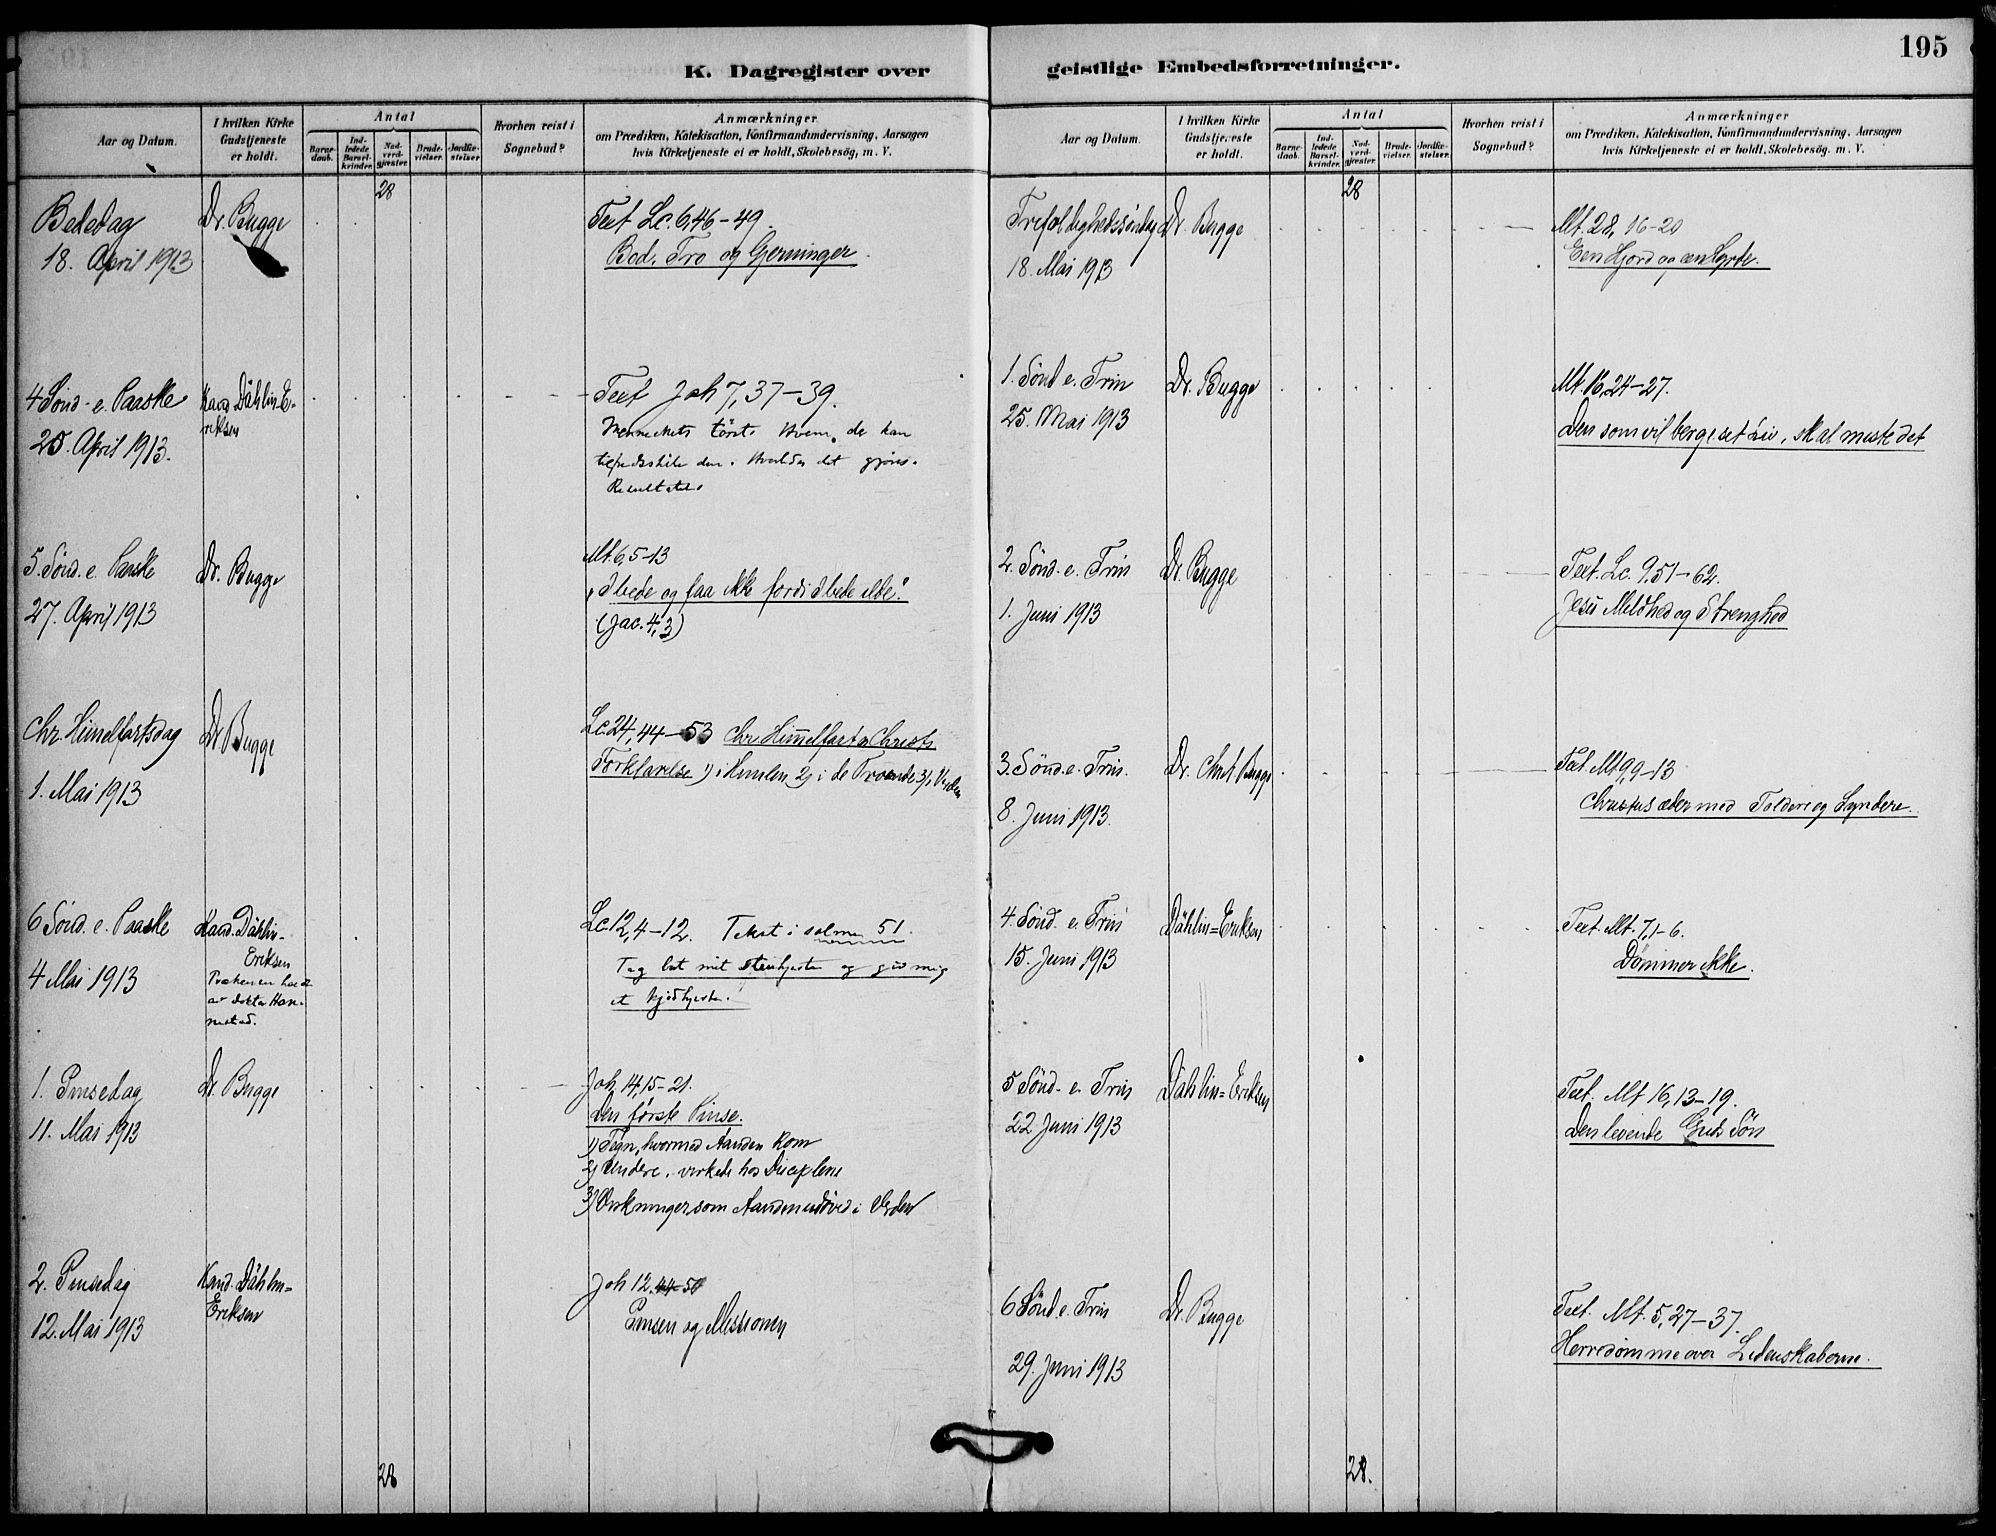 195
K. Dagregister over
geistlige Embedsforretninger.
Aar og Datum.
I hvilken Kirke
Gudstjeneste
er holdt.
Antal
Barne-
daab.
Ind-
ledede
Barsel-
kvinder.
Nad-
verd-
gjæster.
Brude-
vielser.
Jordfæ-
stelser
Hvorhen reist i
Sognebud?
Anmærkninger
om Prædiken, Katekisation, Konfirmandundervisning, Aarsagen
hvis Kirketjeneste ei er holdt, Skolebesög, m. V.
28
Bededag
18. April 1913
Dr. Bugge
Text Lc. 6,46-49.
Bod, Tro og Gjerninger.
4 Sönd. e. Paaske
20. April 1913.
Dählin-E-
riksen
Text Joh 7,37-39.
törst. Hvem, der kan
den. det gjöres.
5. Sönd. e. Paaske
27. April 1913
Dr. Bugge
Mt. 6,5-13
"I bede og faa ikke fordi I bede ilde."
(Jac. 4,3)
Chr. Himelfartsdag
1. Mai 1913
Dr Bugge
Lc. 24,44-53 Chr. Himelfart Christi
Forklarelse 1) i Himlen 2) i de Troende 3) i Verden
6 Sönd. e. Paaske
4 Mai 1913
Kand. Dählin-
Eriksen
Lc. 12,4-12. Tekst i salme 51.
Tag bort mit stenhjerte og giv mig
et kjödhjerte.
1. Pinsedag
11. Mai 1913
Dr Bugge
Joh. 14,15-21.
Den förste Pinse.
1) Tegn, hvormed Aanden kom
2) Undere, virkede hos Disciplene
3) Virkninger som Aanden udöved i Verden
2. Pinsedag
12. Mai 1913
Kand. Dählin=
Eriksen
Joh 12.44-50
Pinsen og Missionen
28
Aar og Datum.
I hvilken Kirke
Gudstjeneste
er holdt.
Antal
Barne-
daab.
Ind-
ledede
Barsel-
kvinder.
Nad-
verd-
gjæster.
Brude-
vielser.
Jordfæ-
stelser
Hvorhen reist i
Sognebud?
Anmærkninger
om Prædiken, Katekisation, Konfirmandundervisning, Aarsagen
hvis Kirketjeneste ei er holdt, Skolebesög, m. V.
28
Trefoldighedssöndag
18. Mai 1913
Dr. Bugge
Mt. 28, 16-20
Een Hjord og een Hyrde.
1. Sönd e. Trin
25. Mai 1913
Dr. Bugge
Mt. 16,24-27.
Den som vil berge set Liv, skal miste det
2. Sönd. e. Trin
1. Juni 1913
Dr. Bugge
Text. Lc. 9,51-62.
Jesu Mildhed og Strenghed
3. Sönd. e. Trin.
8. Juni 1913.
Dr. Chr. Bugge
Text Mt 9,9-13
Christus æder med Toldere og Syndere.
4. Sönd. e. Trin
15. Juni 1913
Dählin=Eriksen
Text. Mt. 7,1-6.
Dömmer ikke.
5 Sönd. e. Trin
22 Juni 1913
Dählin=Eriksen
Text. Mt 16,13-19.
Den levende Guds Sön
6 Sönd. e. Trin
29. Juni 1913
Dr. Bugge
Text. Mt. 5,27-37.
Herredömme over Lidenskaberne.
28.